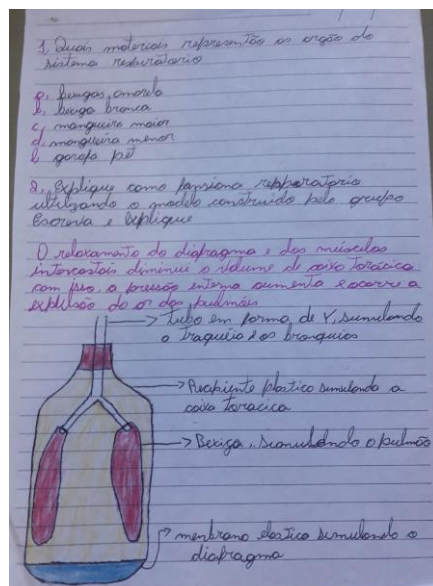 1, Quais materiais representão os orgão do
sistema respiratorio
a, bexigas amarela
b, bexiga branca
c, mangueira maior
d, mangueira menor
e, garafa pet
2, Explique como funsiona respiratorio
utilizando o modelo construido pelo grupo
Escreva e Explique
O relaxamento do diafragma e dos músculos
intercostais diminui o volume de caixa torácica
com isso, a pressão interna aumenta e ocorre a
expulsão do ar dos pulmões
tubo em forma de Y, simulando
a traquéia e os bronquios
Recipiente plastico simulando a
caixa toracica
Bexiga, simulando o pulmão
menbrana elastica simulando o
diafragma